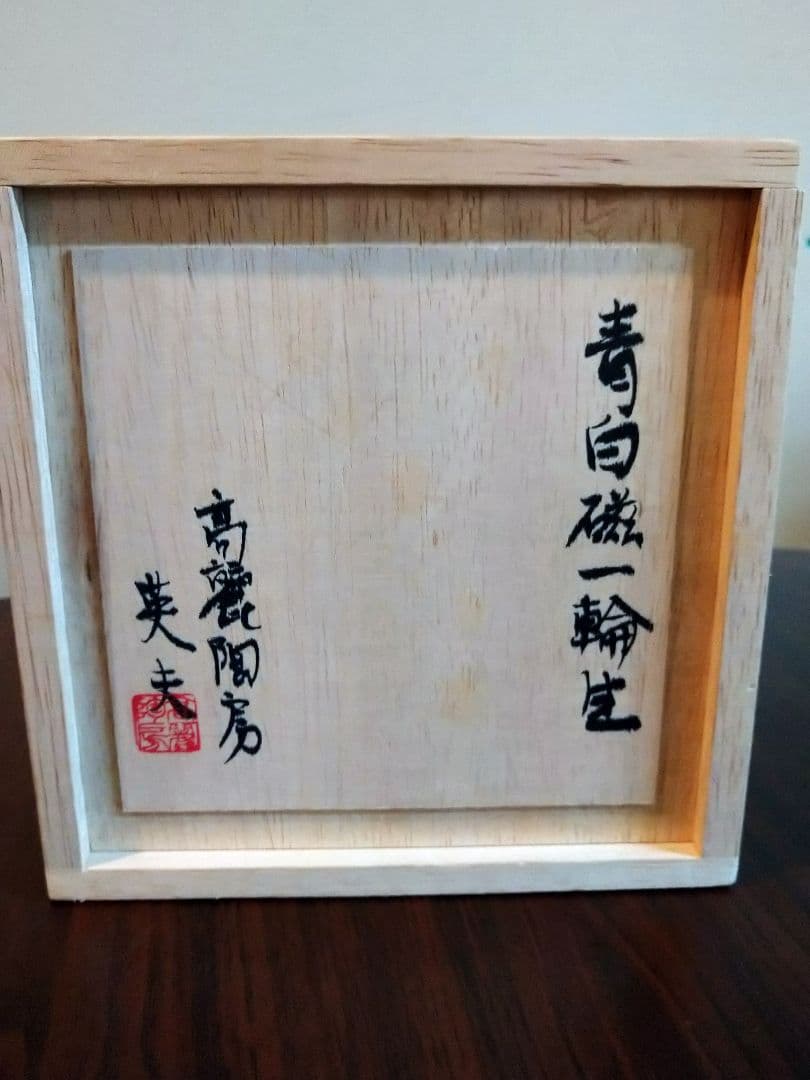 青白磁一輪生
高麗陶房
英夫